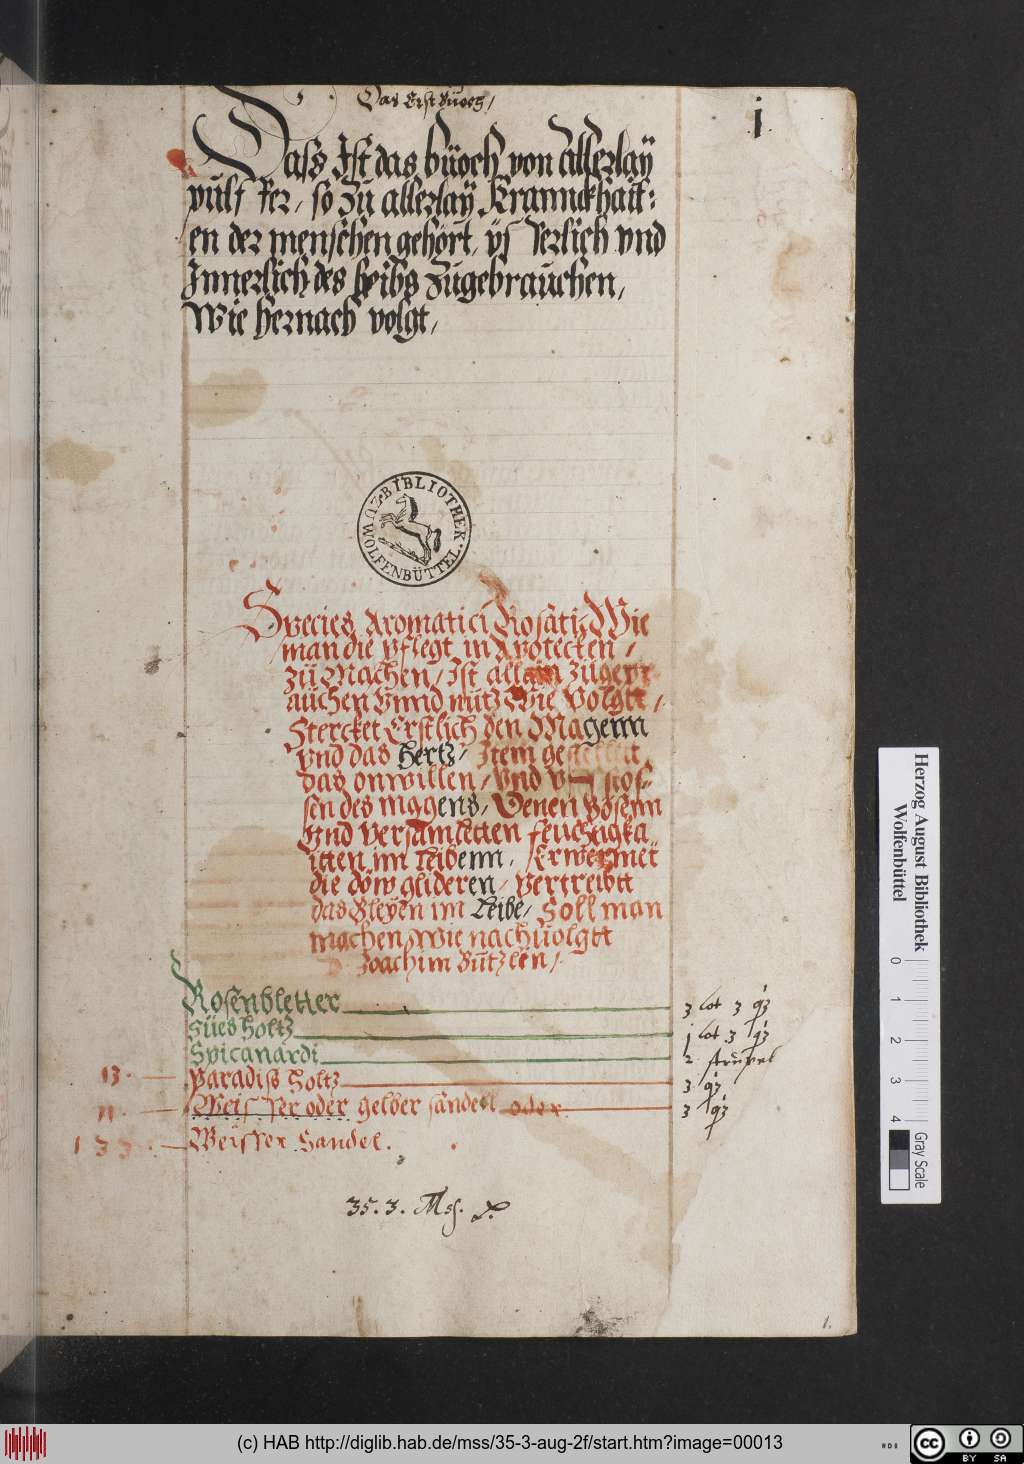 Das Erst Buoch,
j
Dass Ist das büoch von Allerlaÿ
pulffer, so zu allerlaÿ Kranncfhait:
en der menschen gehört, ÿsserlich vnd
Innerlich des leibs zugebrauchen,
Wie hernach volgt,
BIBLIOTHEK ZU WOLFENBÜTTEL.
Species Aromatici Rosati, Wie
man die pflegt in Apotecken,
zů Machen, Ist allain zůgebr
auchen Vnnd nutz Wie Volgtt,
Stercket Erstlich den Magenn
vnd das hertz, Item
das onwillen, vnd stos-
sen des magens, Denen bösenn
vnd versamletten feuchtigka
itten im leibenn, Erwermet
die döw glideren, vertreibtt
das Bleÿen im Leibe, Soll man
machen, Wie nachuolgtt
Joachim Butzlen,
Rosenbletter 3 lot 3 q3
Süesholtz j lot 3 q3
Spicanardi 2 strupel
13. Paradiss holtz 3 q3
11. Weisser oder gelber sandell oder 3 q3
133. Weisser Sandel.
35. 3. Mss.
1.
Herzog August Bibliothek
Wolfenbüttel
0 1 2 3 4
Gray Scale
(c) HAB http://diglib.hab.de/mss/35-3-aug-2f/start.htm?image=00013
cc BY SA